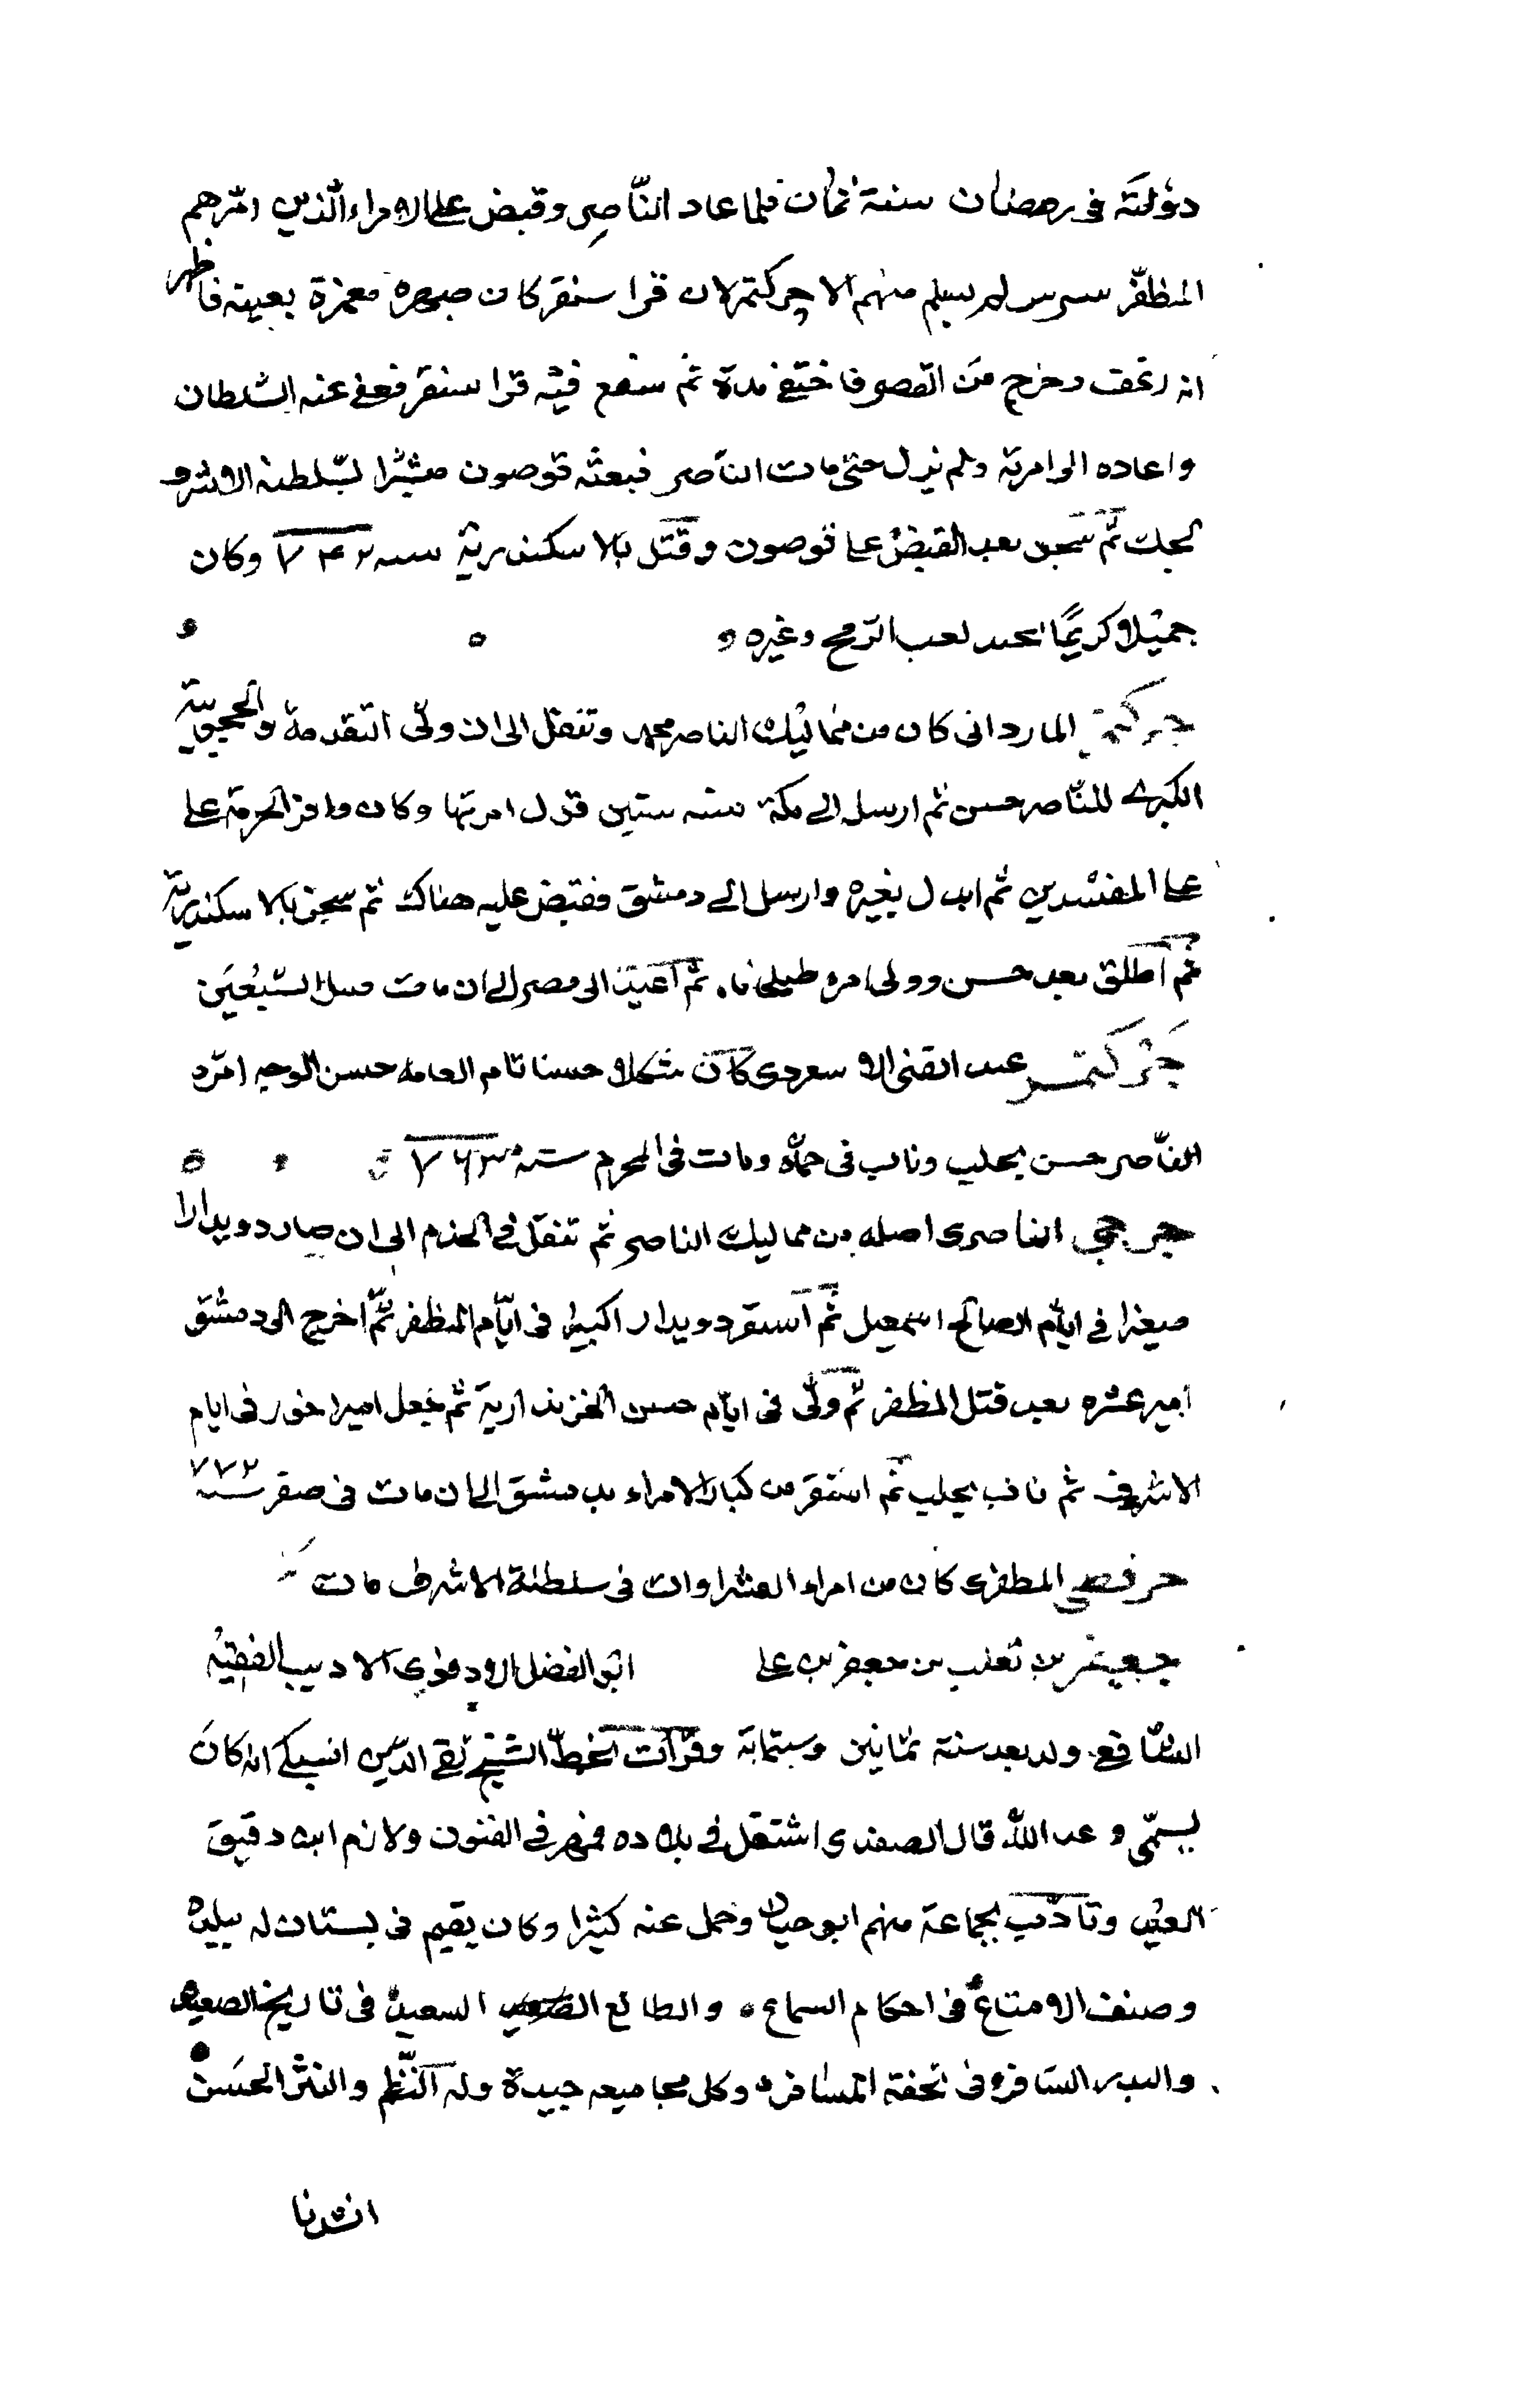 دولته في رمضان سنة ثمان فلما عاد الناصر وقبض على الامراء الذين امرهم
المظفر بيبرس لم يسلم منهم الا جركتمر لان قرا سنقر كان صهره فغمزه بعينه فاظهر
انه رعف وخرج من القصر فاختفى مدة ثم شفع فيه قرا سنقر فعفى عنه السلطان
واعاده الى امرته ولم يزل حتى مات الناصر فبعثه قوصون مبشرا بسلطنة الاشرف
كجك ثم سجن بعد القبض على قوصون وقتل بالاسكندرية سنه ٧٤٢ وكان
جميلا كريما يجيد لعب الرمح وغيره
جركتمر المارداني كان من مماليك الناصر محمد وتنقل الى ان ولى التقدمة والحجوبية
الكبرى للناصر حسن ثم ارسل الى مكة سنه ستين فولي امرتها وكان وافر الحرمة على
على المفسدين ثم ابدل بغيره وارسل الى دمشق فقبض عليه هناك ثم سجن بالاسكندرية
ثم اطلق بعد حسن وولى امره طبلخاناه ثم اعيد الى مصر الى ان مات قبل السبعين
جركتمر عبد الغني الاسعردي كان شكلا حسنا تام القامه حسن الوجه امره
الناصر حسن بحلب وناب في حماة ومات في المحرم سنة ٧٦٣
جرجي الناصري اصله من مماليك الناصر ثم تنقل في الخدم الى ان صار دويدارا
صغيرا في ايام الصالح اسمعيل ثم استقر دويدارا كبيرا في ايام المظفر ثم اخرج الى دمشق
امير عشره بعد قتل المظفر ثم ولى في ايام حسن الخزندارية ثم جعل امير اخور في ايام
الاشرف ثم ناب بحلب ثم استقر من كبار الامراء بدمشق الى ان مات في صفر سنة ٧٧٢
المظفري كان من امراء العشراوات في سلطنة الاشرف مات
جعفر بن ثعلب بن جعفر بن على ابو الفضل الادفوي الاديب الفقيه
الشافعي ولد بعد سنة ثمانين وستمائة وقرات بخط الشيخ تقي الدين السبكي انه كان
يسمى وعد الله قال الصفدي اشتغل في بلاده فمهر في الفنون ولازم ابن دقيق
العيد وتادب بجماعة منهم ابو حيان وحمل عنه كثيرا وكان يقيم في بستان له ببلده
وصنف الامتاع في احكام السماع والطالع السعيد في تاريخ الصعيد
والبدر السافر في تحفة المسافر وكل مجاميعه جيدة وله النظم والنثر الحسن
انشدنا